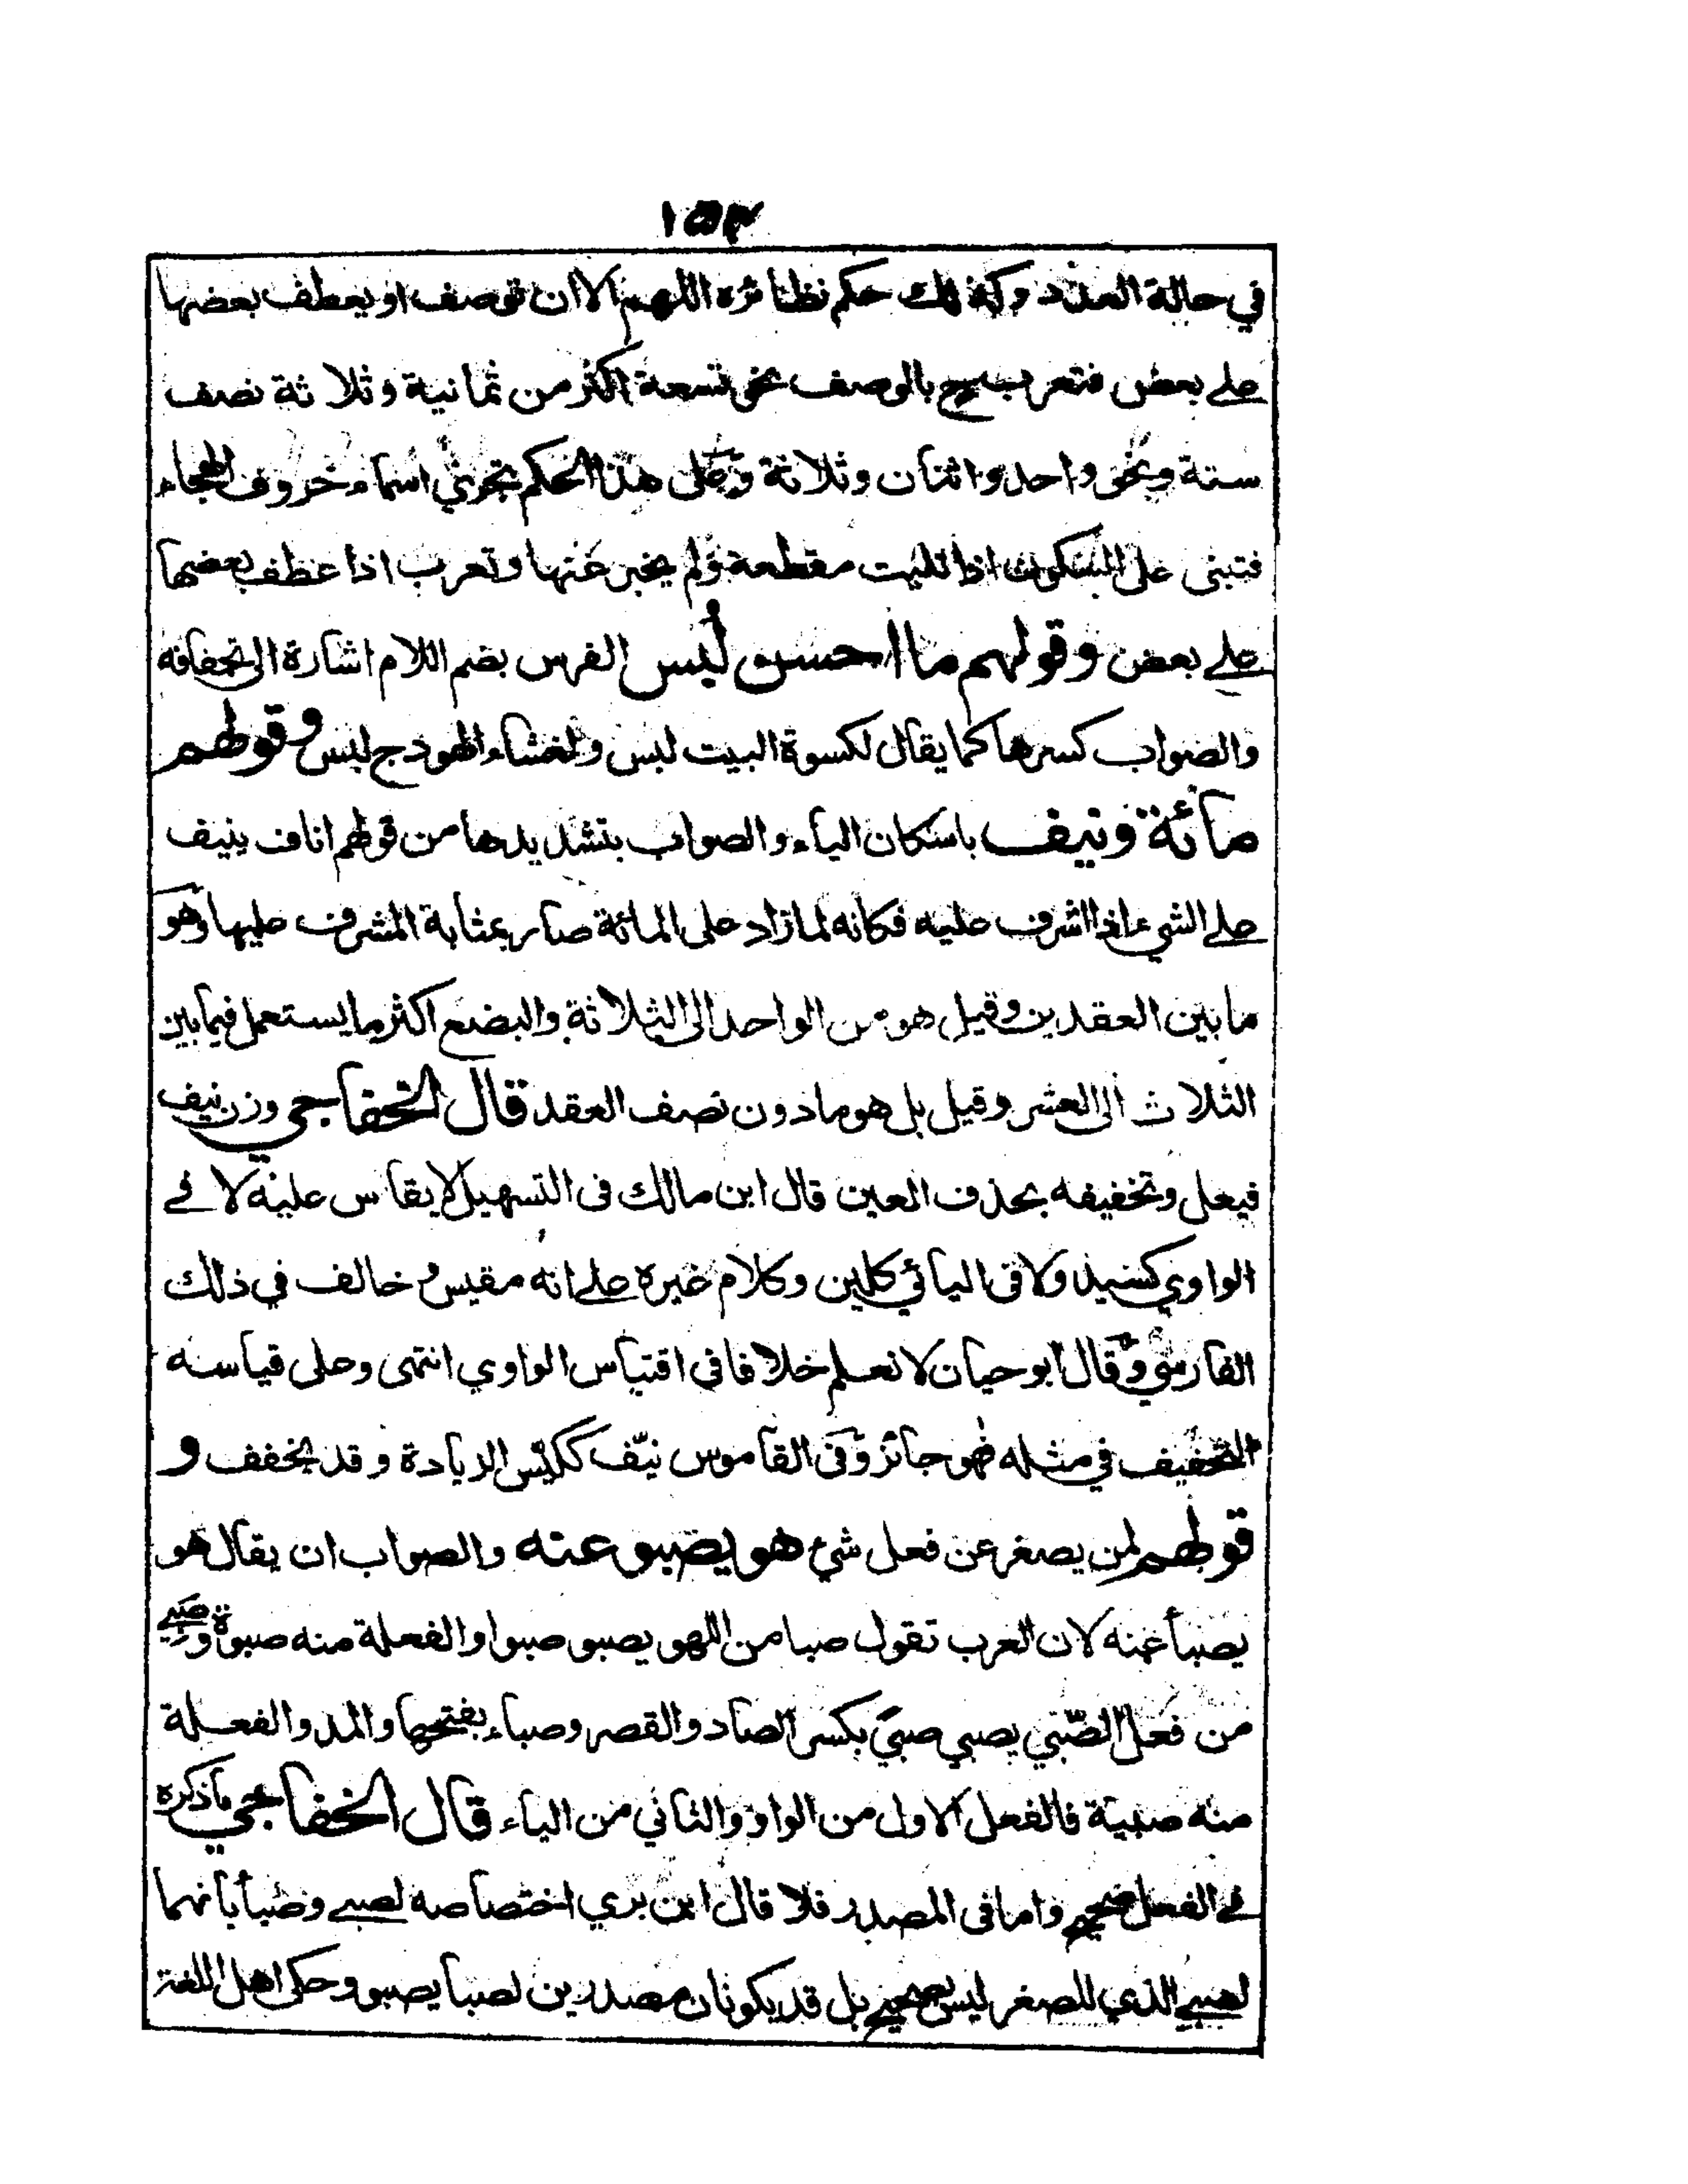 ١٥٣
في حالة العدد وكذلك حكم نظائره اللهم الا ان توصف او يعطف بعضها
على بعض فتعرب ح بالوصف نحو تسعة اكثر من ثمانية وثلاثة نصف
ستة ونحو واحد واثنان وثلاثة وعلى هذا الحكم تجري اسماء حروف الهجاء
فتبنى على السكون اذا تليت مقطعة ولم يخبر عنها وتعرب اذا عطف بعضها
على بعض وقولهم ما احسن لُبس الفرس بضم اللام اشارة الى تجفافه
والصواب كسرها كما يقال لكسوة البيت لبس ولغشاء الهودج لبس وقولهم
مائة ونيف باسكان الياء والصواب بتشديدها من قولهم اناف ينيف
على الشيء اذا اشرف عليه فكانه لما زاد على المائة صار بمثابة المشرف عليها وهو
ما بين العقدين وقيل هو من الواحد الى الثلاثة والبضع اكثر ما يستعمل فيما بين
الثلاث الى العشر وقيل بل هو ما دون نصف العقد قال الخفاجي وزن نيف
فيعل وتخفيفه بحذف العين قال ابن مالك فى التسهيل لا يقاس عليه لا في
الواوي كسيد ولا فى اليائي كلين وكلام غيره على انه مقيس وخالف في ذلك
الفارسي وقال ابو حيان لا نعلم خلافا فى اقتياس الواوي انتهى وعلى قياسه
التخفيف في مثله فهو جائز وفى القاموس نيّف ككيّس الزيادة وقد يخفف و
قولهم لمن يصغر عن فعل شئ هو يصبو عنه والصواب ان يقال هو
يصبأ عنه لان العرب تقول صبا من اللهو يصبو صبوا والفعلة منه صبوة وصَبِي
من فعل الصّبي يصبي صبىً بكسر الصاد والقصر وصباء بفتحها والمد والفعلة
منه صبية فالفعل الاول من الواو والثاني من الياء قال الخفاجي ما ذكره
في الفعل صحيح واما فى المصدر فلا قال ابن بري اختصاصه لصبى وصبأ بانهما
لصبي الذي للصغر ليس بصحيح بل قد يكونان مصدرين لصبا يصبو وحكى اهل اللغة